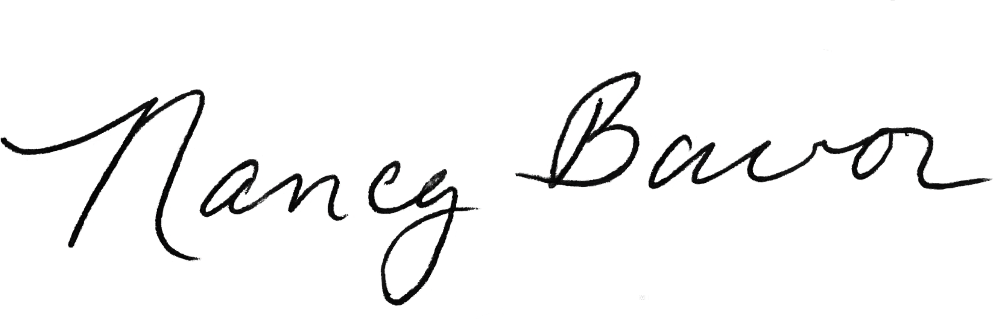 Nancy Bavor